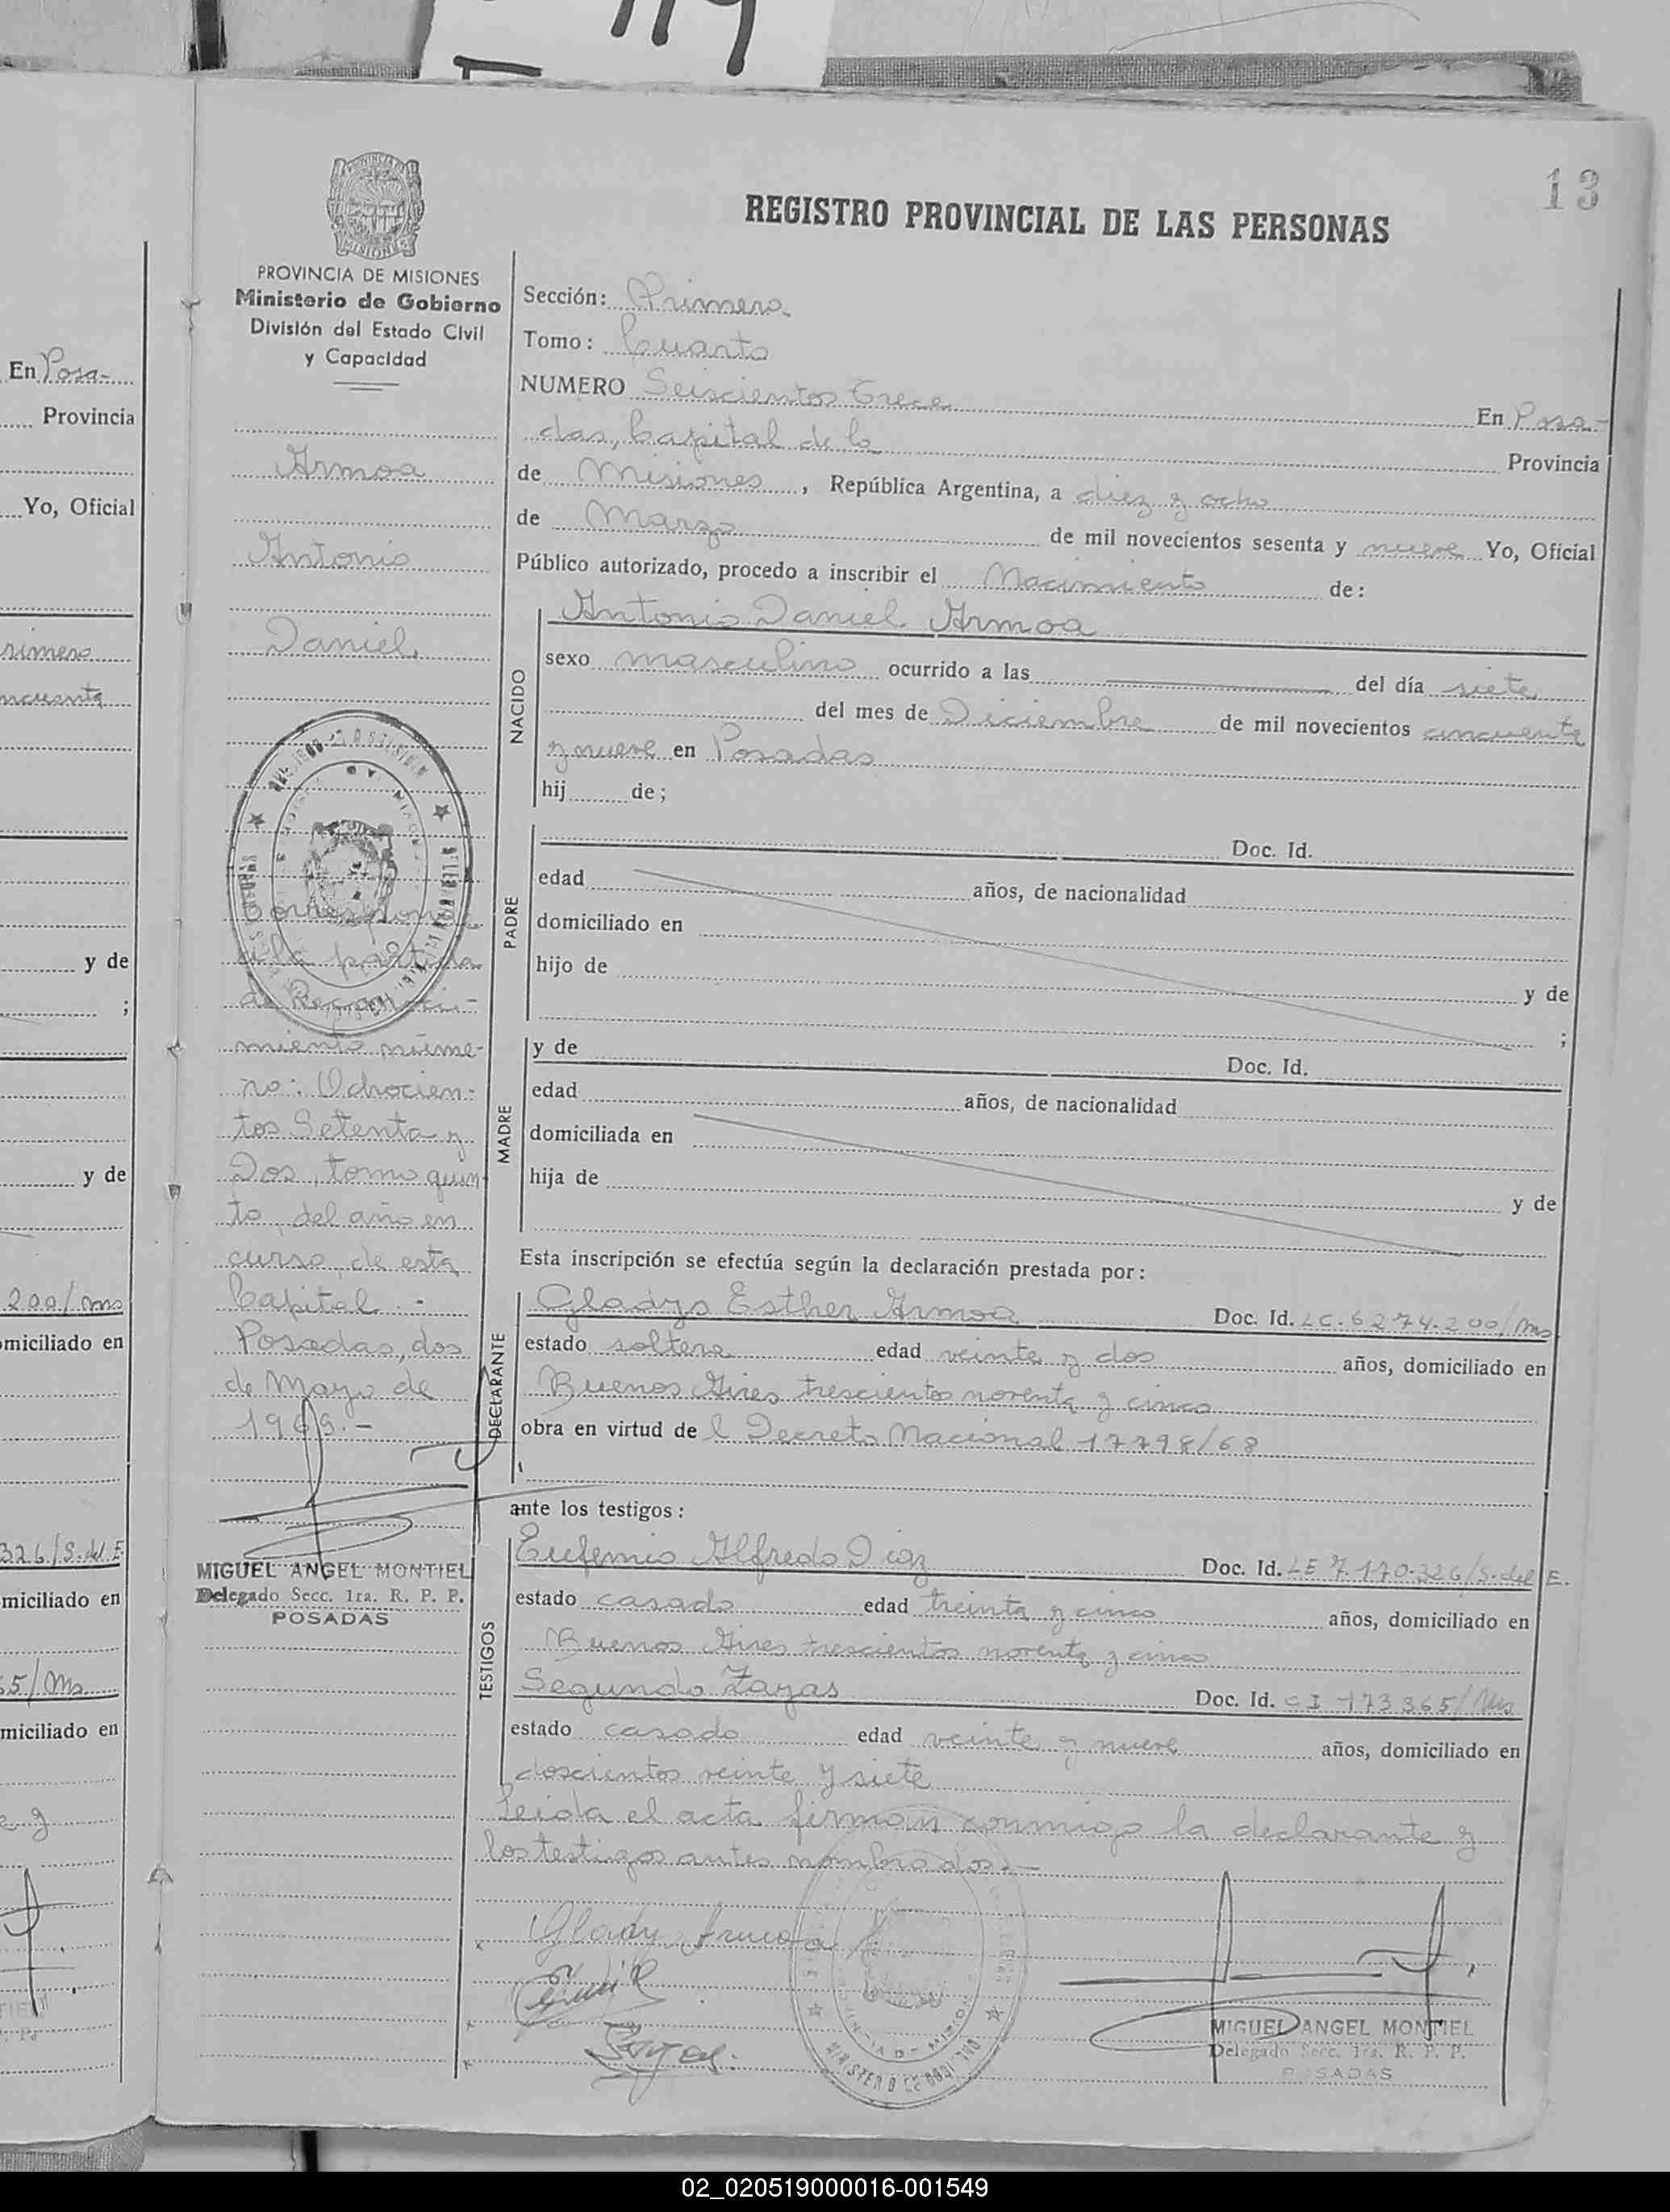 13
REGISTRO PROVINCIAL DE LAS PERSONAS
PROVINCIA DE MISIONES
Ministerio de Gobierno
División del Estado Civil
y Capacidad
Armoa
Antonio
Daniel
Corresponde
a la partida
de Reconoci-
miento núme-
ro: Ochocien-
tos Setenta y
Dos, tomo quin-
to, del año en
curso, de esta
Capital.-
Posadas, dos
de Mayo de
1969.-
MIGUEL ANGEL MONTIEL
Delegado Secc. 1ra. R. P. P.
POSADAS
Sección: Primera
Tomo: Cuarto
NUMERO Seiscientos trece En Posa-
das, Capital de la Provincia
de Misiones, República Argentina, a diez y ocho
de Marzo de mil novecientos sesenta y nueve Yo, Oficial
Público autorizado, procedo a inscribir el Nacimiento de:
NACIDO
Antonio Daniel Armoa
sexo masculino ocurrido a las del día siete
del mes de Diciembre de mil novecientos cincuenta
y nueve en Posadas
hij de;
PADRE
Doc. Id.
edad años, de nacionalidad
domiciliado en
hijo de y de
;
MADRE
y de Doc. Id.
edad años, de nacionalidad
domiciliada en
hija de y de
Esta inscripción se efectúa según la declaración prestada por:
DECLARANTE
Gladys Esther Armoa Doc. Id. LC. 6274.200/Ms
estado soltera edad veinte y dos años, domiciliado en
Buenos Aires trescientos noventa y cinco
obra en virtud de l Decreto Nacional 17798/68
ante los testigos:
TESTIGOS
Eufemio Alfredo Diaz Doc. Id. LE 7.170.326/S. del E.
estado casado edad treinta y cinco años, domiciliado en
Buenos Aires trescientos noventa y cinco
Segundo Zayas Doc. Id. CI 173365/Ms
estado casado edad veinte y nueve años, domiciliado en
doscientos veinte y siete
Leida el acta firman conmigo la declarante y
los testigos antes nombrados.-
MIGUEL ANGEL MONTIEL
Delegado Secc. 1ra. R. P. P.
POSADAS
En Posa-
Provincia
Yo, Oficial
rimero
ncuenta
y de
;
y de
200/Ms
omiciliado en
326/S. del E.
miciliado en
65/Ms
miciliado en
02_020519000016-001549